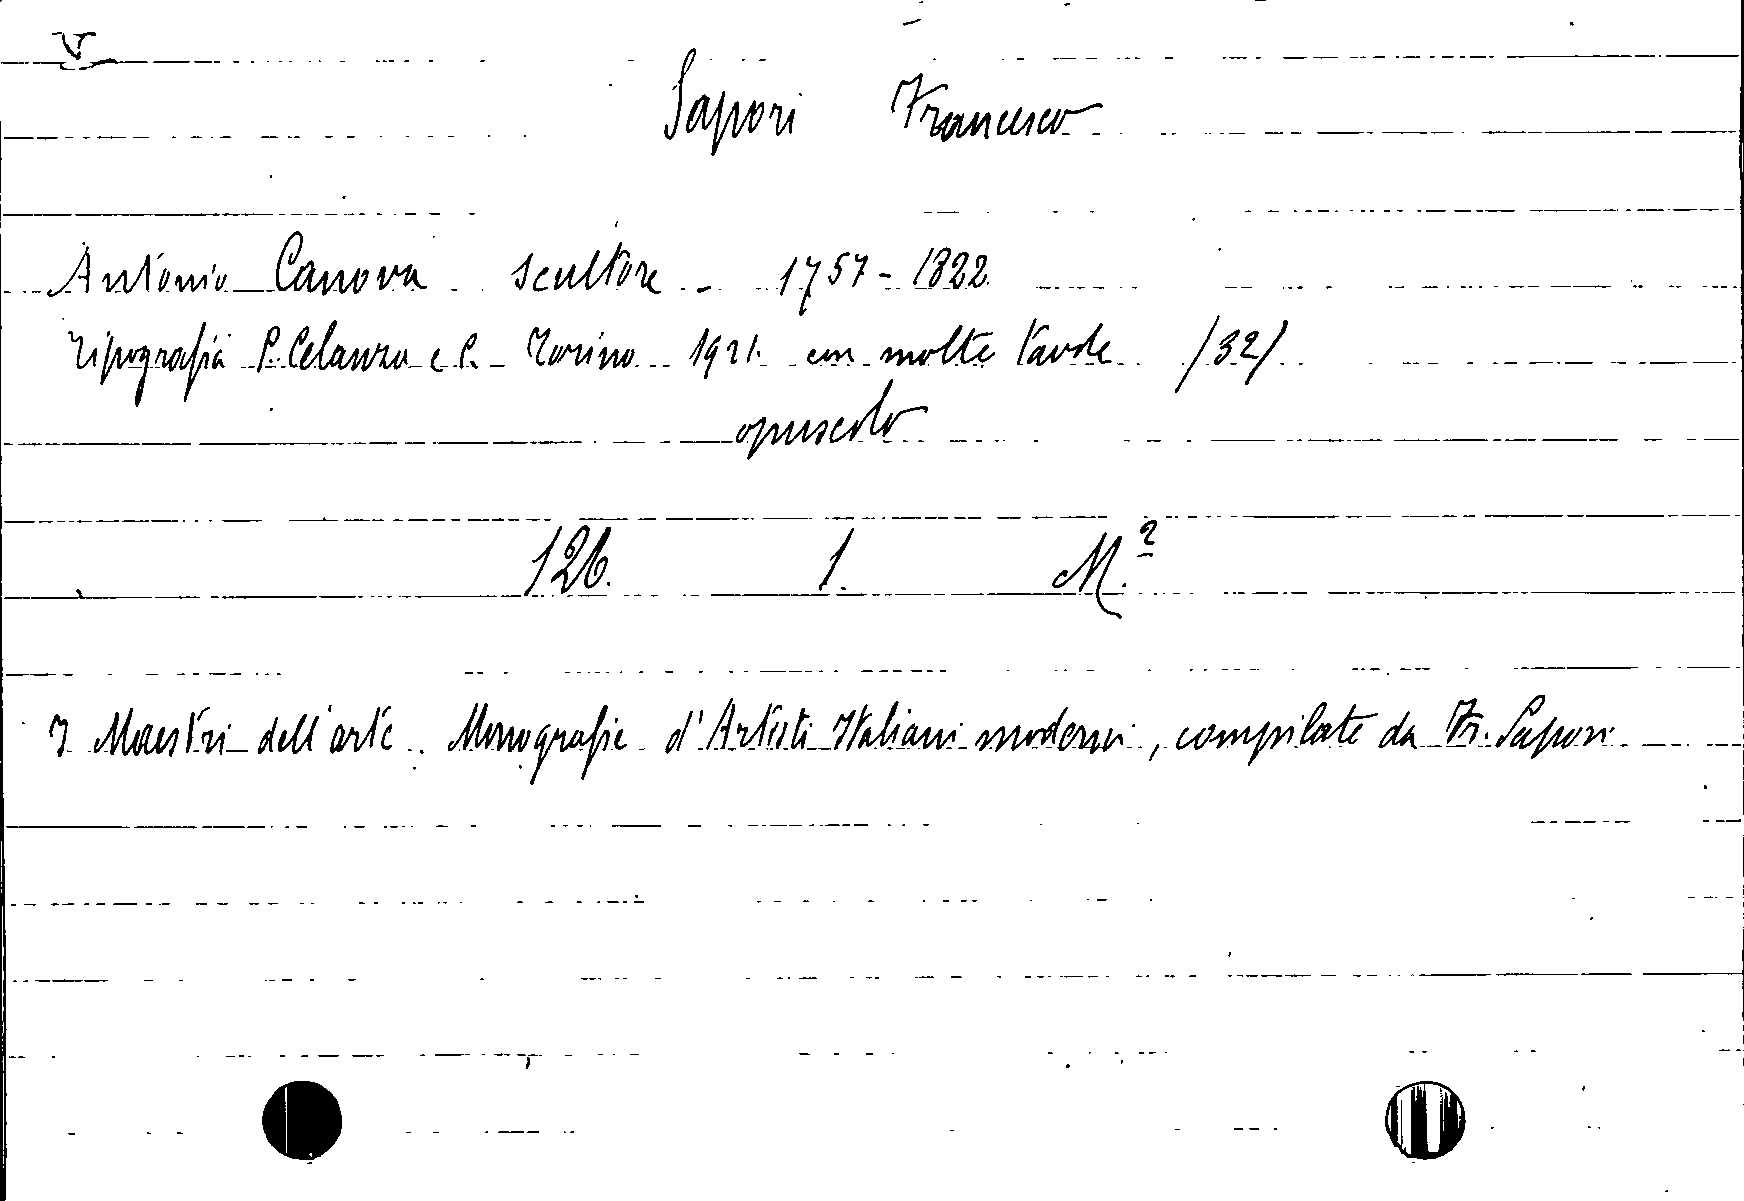 V
Sapori Francesco
Antonio Canova scultore - 1757 - 1822
Tipografia P. Celanza e C. - Torino 1921. con molte tavole /32/
opuscolo
126. 1. M.2
I Maestri dell'arte. Monografie d'Artisti Italiani moderni, compilate da Fr. Sapori